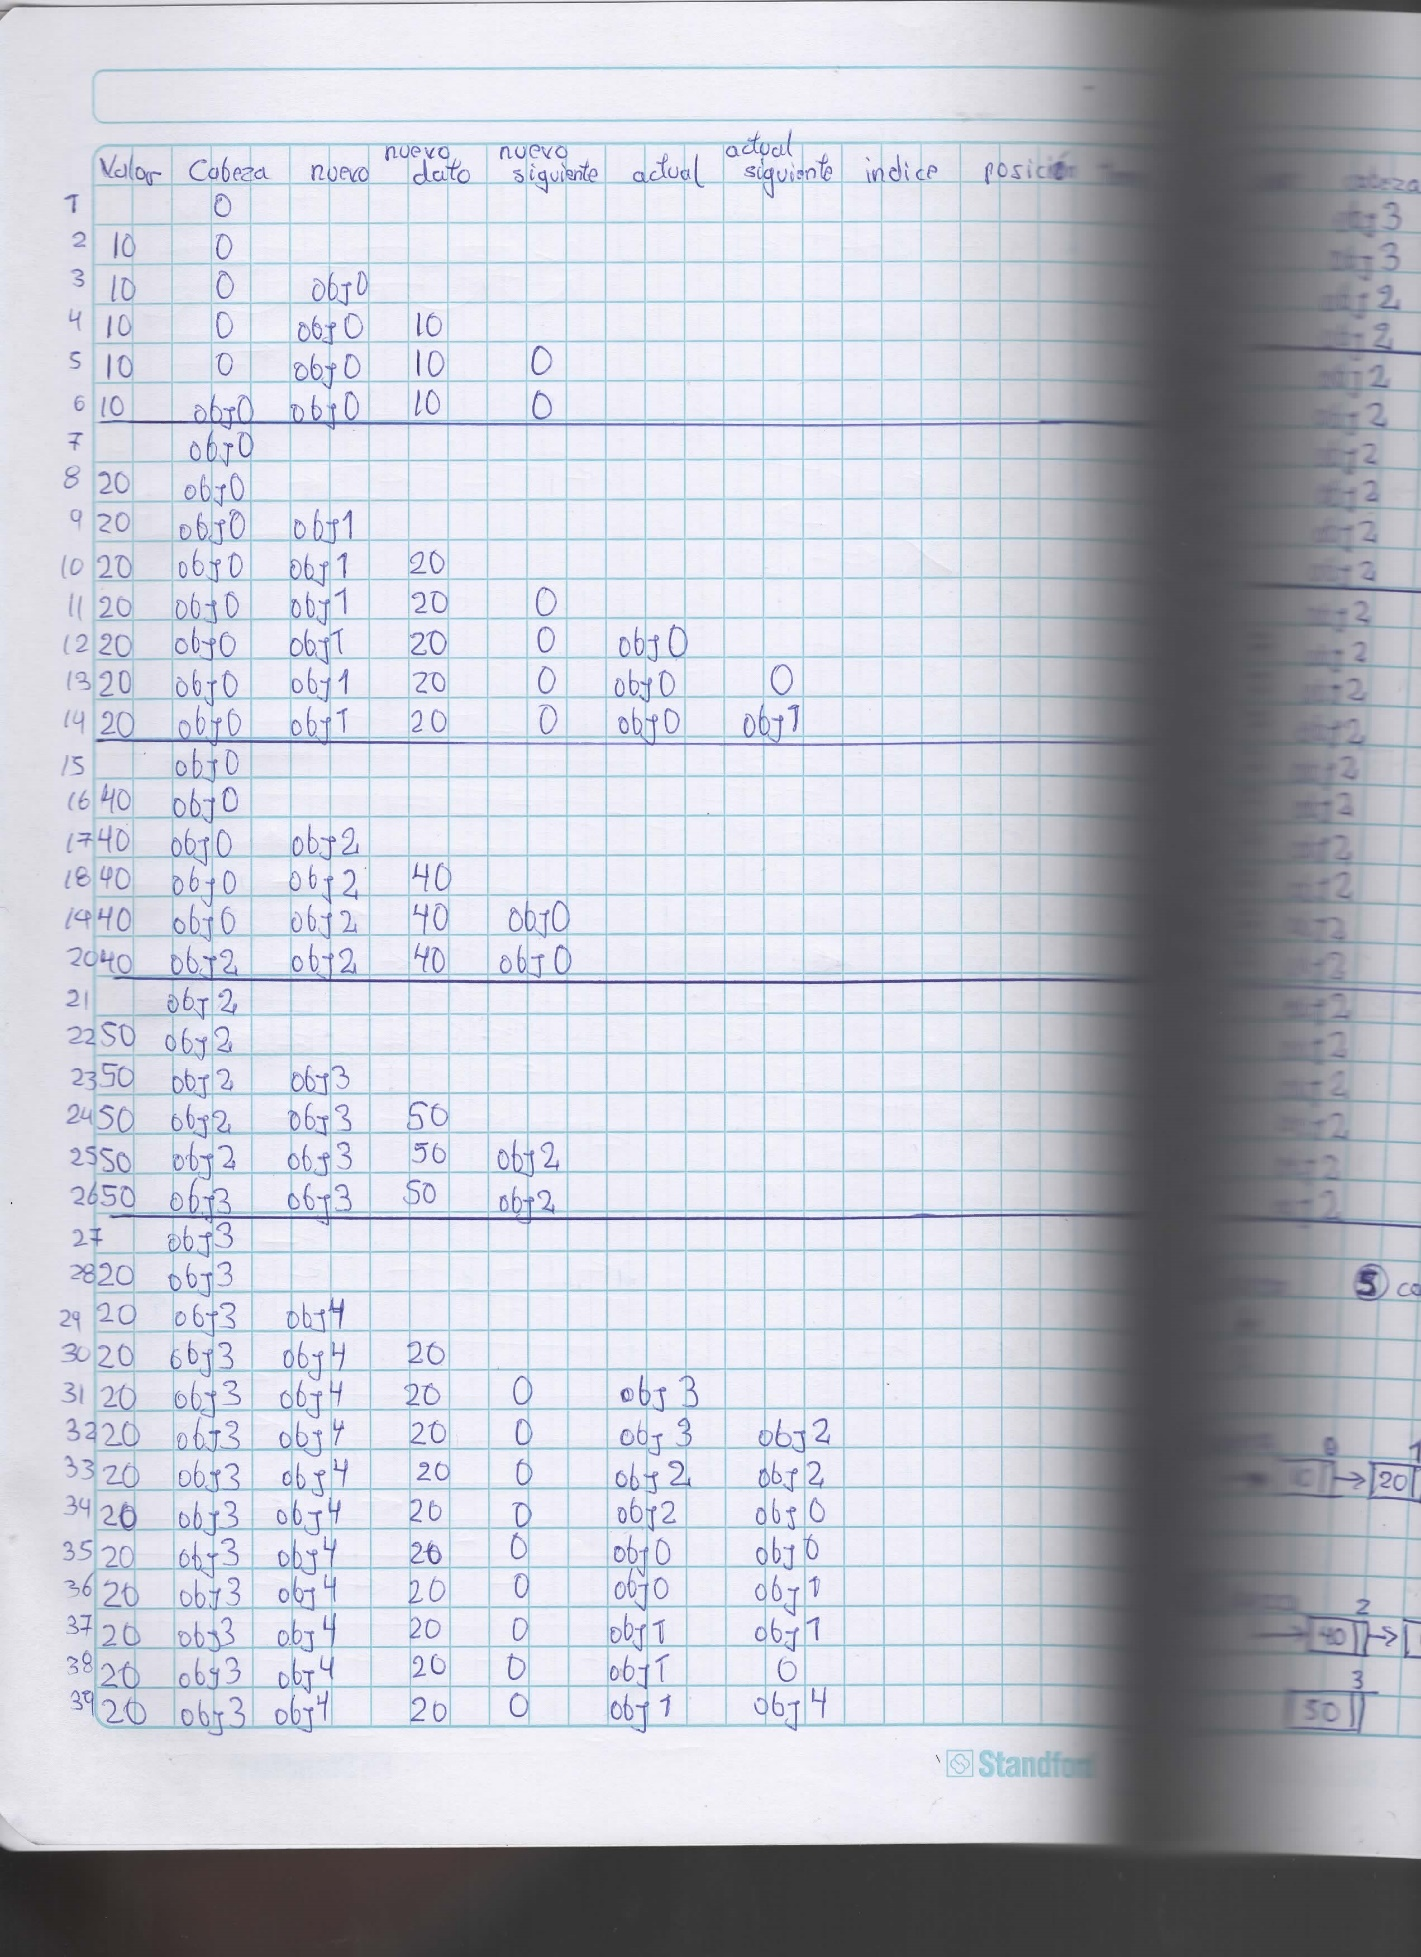 Valor Cabeza nuevo nuevo dato nuevo siguiente actual actual siguiente indice posición
1 0
2 10 0
3 10 0 obj0
4 10 0 obj0 10
5 10 0 obj0 10 0
6 10 obj0 obj0 10 0
7 obj0
8 20 obj0
9 20 obj0 obj1
10 20 obj0 obj1 20
11 20 obj0 obj1 20 0
12 20 obj0 obj1 20 0 obj0
13 20 obj0 obj1 20 0 obj0 0
14 20 obj0 obj1 20 0 obj0 obj1
15 obj0
16 40 obj0
17 40 obj0 obj2
18 40 obj0 obj2 40
19 40 obj0 obj2 40 obj0
20 40 obj2 obj2 40 obj0
21 obj2
22 50 obj2
23 50 obj2 obj3
24 50 obj2 obj3 50
25 50 obj2 obj3 50 obj2
26 50 obj3 obj3 50 obj2
27 obj3
28 20 obj3
29 20 obj3 obj4
30 20 obj3 obj4 20
31 20 obj3 obj4 20 0 obj3
32 20 obj3 obj4 20 0 obj3 obj2
33 20 obj3 obj4 20 0 obj2 obj2
34 20 obj3 obj4 20 0 obj2 obj0
35 20 obj3 obj4 20 0 obj0 obj0
36 20 obj3 obj4 20 0 obj0 obj1
37 20 obj3 obj4 20 0 obj1 obj1
38 20 obj3 obj4 20 0 obj1 0
39 20 obj3 obj4 20 0 obj1 obj4
cabeza
obj3
obj3
obj2
obj2
obj2
obj2
obj2
obj2
obj2
obj2
obj2
obj2
obj2
obj2
obj2
obj2
obj2
obj2
obj2
obj2
obj2
obj2
obj2
obj2
obj2
obj2
5
0 1
10 20
2
40
3
50